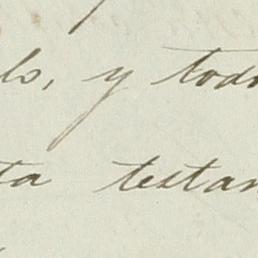 lo, y todo
ta testam